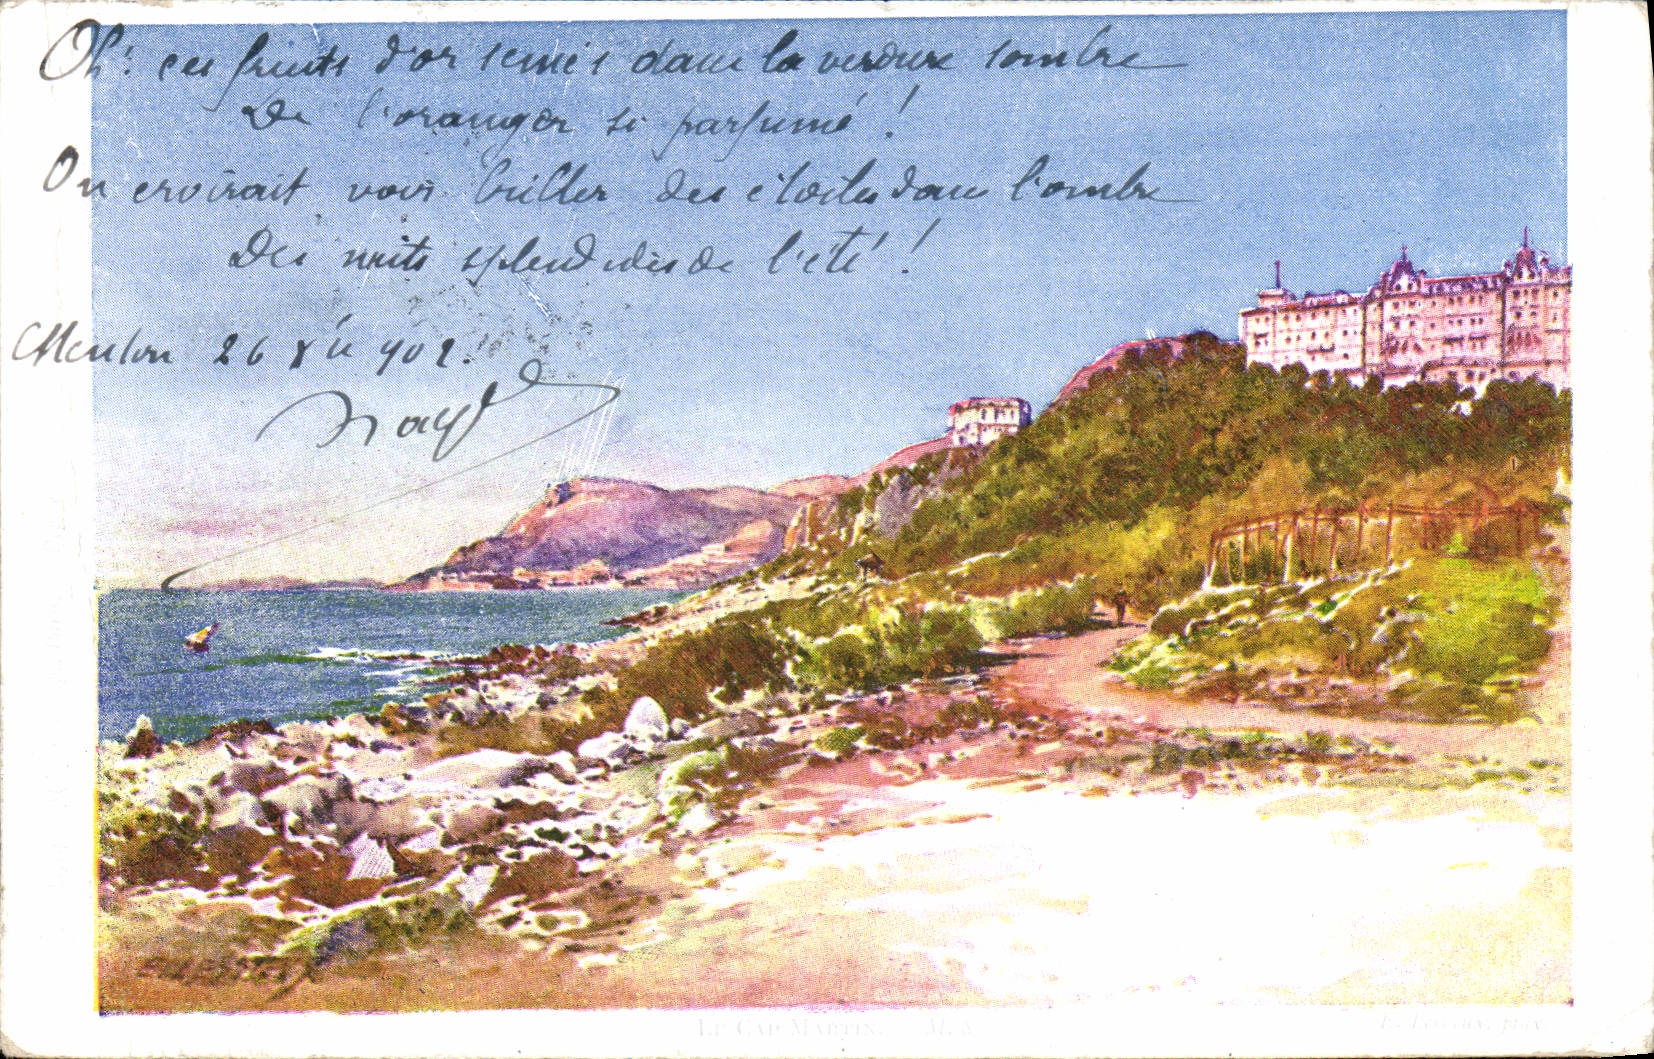 Oh! ces fruits d'or semés dans la verdure sombre
De l'oranger si parfumé !
On croirait voir briller des étoiles dans l'ombre
Des nuits splendides de l'été !
Menton 26 902.
LE CAP MARTIN.